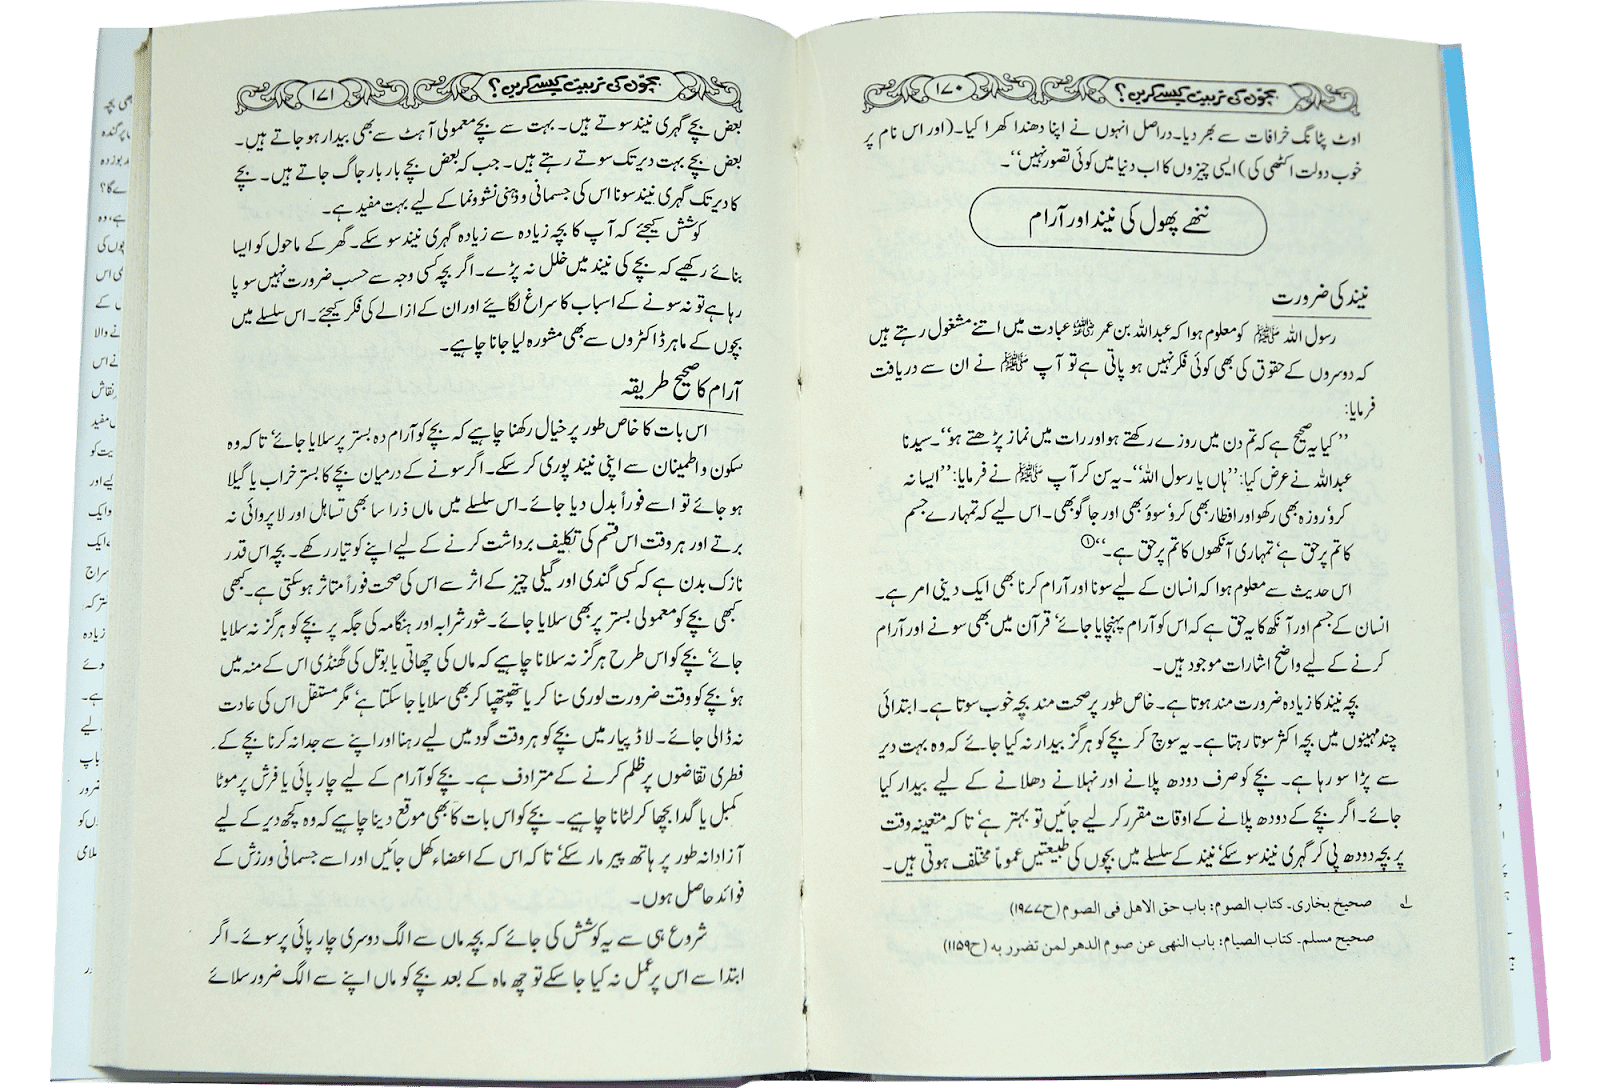 بچوں کی تربیت کیسے کریں؟ ۱۷۰
اوٹ پٹانگ خرافات سے بھر دیا۔ دراصل انہوں نے اپنا دھندا کھرا کیا۔ (اور اس نام پر
خوب دولت اکٹھی کی) ایسی چیزوں کا اب دنیا میں کوئی تصور نہیں‘‘۔
ننھے پھول کی نیند اور آرام
نیند کی ضرورت
رسول اللہ ﷺ کو معلوم ہوا کہ عبداللہ بن عمر عبادت میں اتنے مشغول رہتے ہیں
کہ دوسروں کے حقوق کی بھی کوئی فکر نہیں ہو پاتی ہے تو آپ ﷺ نے ان سے دریافت
فرمایا:
’’کیا یہ صحیح ہے کہ تم دن میں روزے رکھتے ہو اور رات میں نماز پڑھتے ہو‘‘۔ سیدنا
عبداللہ نے عرض کیا: ’’ہاں یا رسول اللہ‘‘۔ یہ سن کر آپ ﷺ نے فرمایا: ’’ایسا نہ
کرو‘ روزہ بھی رکھو اور افطار بھی کرو‘ سوؤ بھی اور جاگو بھی۔ اس لیے کہ تمہارے جسم
کا تم پر حق ہے‘ تمہاری آنکھوں کا تم پر حق ہے۔‘‘①
اس حدیث سے معلوم ہوا کہ انسان کے لیے سونا اور آرام کرنا بھی ایک دینی امر ہے۔
انسان کے جسم اور آنکھ کا یہ حق ہے کہ اس کو آرام پہنچایا جائے‘ قرآن میں بھی سونے اور آرام
کرنے کے لیے واضح اشارات موجود ہیں۔
بچہ نیند کا زیادہ ضرورت مند ہوتا ہے۔ خاص طور پر صحت مند بچہ خوب سوتا ہے۔ ابتدائی
چند مہینوں میں بچہ اکثر سوتا رہتا ہے۔ یہ سوچ کر بچے کو ہرگز بیدار نہ کیا جائے کہ وہ بہت دیر
سے پڑا سو رہا ہے۔ بچے کو صرف دودھ پلانے اور نہلانے دھلانے کے لیے بیدار کیا
جائے۔ اگر بچے کے دودھ پلانے کے اوقات مقرر کر لیے جائیں تو بہتر ہے‘ تاکہ متعینہ وقت
پر بچہ دودھ پی کر گہری نیند سو سکے‘ نیند کے سلسلے میں بچوں کی طبیعتیں عموماً مختلف ہوتی ہیں۔
لہ صحیح بخاری۔ کتاب الصوم: باب حق الاهل فی الصوم (ح۱۹۷۷)
صحیح مسلم۔ کتاب الصیام: باب النهی عن صوم الدهر لمن تضرر به (ح۱۱۵۹)
بچوں کی تربیت کیسے کریں؟ ۱۷۱
بعض بچے گہری نیند سوتے ہیں۔ بہت سے بچے معمولی آہٹ سے بھی بیدار ہو جاتے ہیں۔
بعض بچے بہت دیر تک سوتے رہتے ہیں۔ جب کہ بعض بچے بار بار جاگ جاتے ہیں۔ بچے
کا دیر تک گہری نیند سونا اس کی جسمانی و ذہنی نشوونما کے لیے بہت مفید ہے۔
کوشش کیجئے کہ آپ کا بچہ زیادہ سے زیادہ گہری نیند سو سکے۔ گھر کے ماحول کو ایسا
بنائے رکھیے کہ بچے کی نیند میں خلل نہ پڑے۔ اگر بچہ کسی وجہ سے حسب ضرورت نہیں سو پا
رہا ہے تو نہ سونے کے اسباب کا سراغ لگائیے اور ان کے ازالے کی فکر کیجئے۔ اس سلسلے میں
بچوں کے ماہر ڈاکٹروں سے بھی مشورہ لیا جانا چاہیے۔
آرام کا صحیح طریقہ
اس بات کا خاص طور پر خیال رکھنا چاہیے کہ بچے کو آرام دہ بستر پر سلایا جائے‘ تاکہ وہ
سکون و اطمینان سے اپنی نیند پوری کر سکے۔ اگر سونے کے درمیان بچے کا بستر خراب یا گیلا
ہو جائے تو اسے فوراً بدل دیا جائے۔ اس سلسلے میں ماں ذرا سا بھی تساہل اور لاپروائی نہ
برتے اور ہر وقت اس قسم کی تکلیف برداشت کرنے کے لیے اپنے کو تیار رکھے۔ بچہ اس قدر
نازک بدن ہے کہ کسی گندی اور گیلی چیز کے اثر سے اس کی صحت فوراً متاثر ہو سکتی ہے۔ کبھی
کبھی بچے کو معمولی بستر پر بھی سلایا جائے۔ شور شرابہ اور ہنگامہ کی جگہ پر بچے کو ہرگز نہ سلایا
جائے‘ بچے کو اس طرح ہرگز نہ سلانا چاہیے کہ ماں کی چھاتی یا بوتل کی گھنڈی اس کے منہ میں
ہو‘ بچے کو وقت ضرورت لوری سنا کر یا تھپتھپا کر بھی سلایا جا سکتا ہے‘ مگر مستقل اس کی عادت
نہ ڈالی جائے۔ لاڈ پیار میں بچے کو ہر وقت گود میں لیے رہنا اور اپنے سے جدا نہ کرنا بچے کے
فطری تقاضوں پر ظلم کرنے کے مترادف ہے۔ بچے کو آرام کے لیے چارپائی یا فرش پر موٹا
کمبل یا گدا بچھا کر لٹانا چاہیے۔ بچے کو اس بات کا بھی موقع دینا چاہیے کہ وہ کچھ دیر کے لیے
آزادانہ طور پر ہاتھ پیر مار سکے‘ تاکہ اس کے اعضاء کھل جائیں اور اسے جسمانی ورزش کے
فوائد حاصل ہوں۔
شروع ہی سے یہ کوشش کی جائے کہ بچہ ماں سے الگ دوسری چارپائی پر سوئے۔ اگر
ابتدا سے اس پر عمل نہ کیا جا سکے تو چھ ماہ کے بعد بچے کو ماں اپنے سے الگ ضرور سلائے